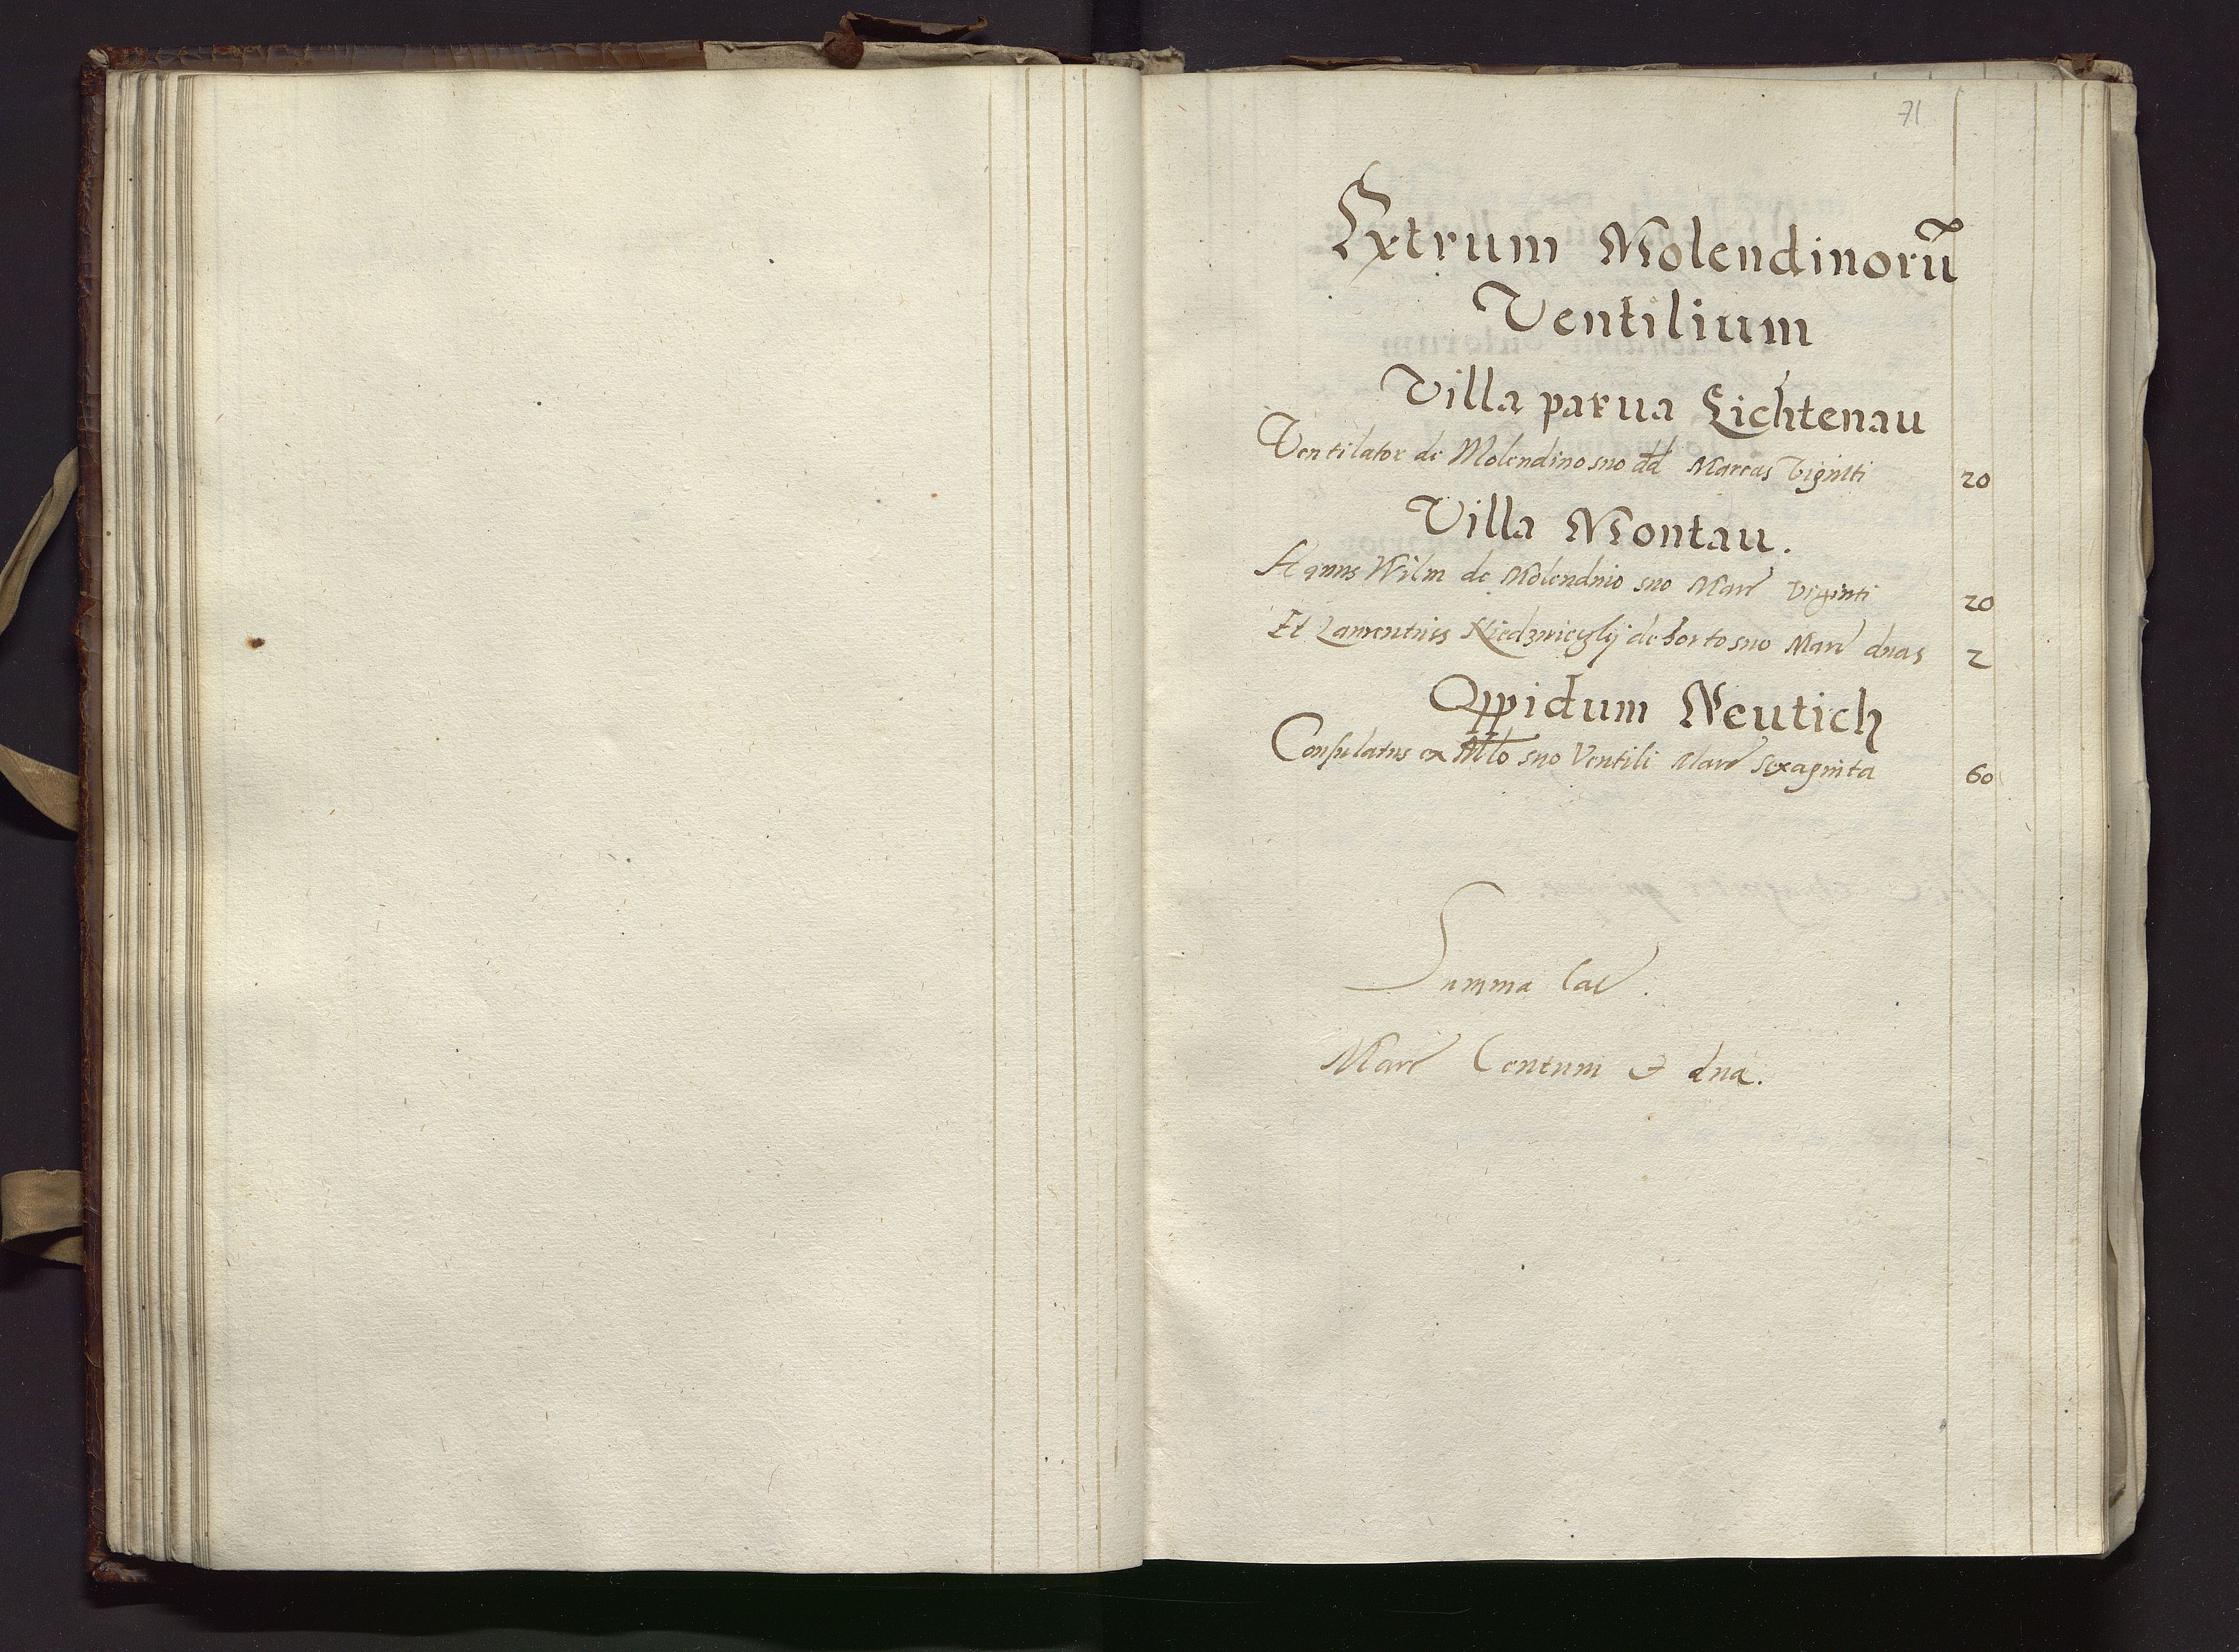 71
Extrum Molendinorū
Ventilium
Villa parua Lichtenau
Ventilator de Molendino suo dd Marcas Viginti 20
Villa Montau.
Hanns Wilm de Molendino suo Marc Viginti 20
Et Laurentius de horto suo Marc duas 2
Oppidum Neutich
Consulatus ex Mlo suo Ventili Marc Sexaginta 60
Summa lac
Marc Centum & dua.